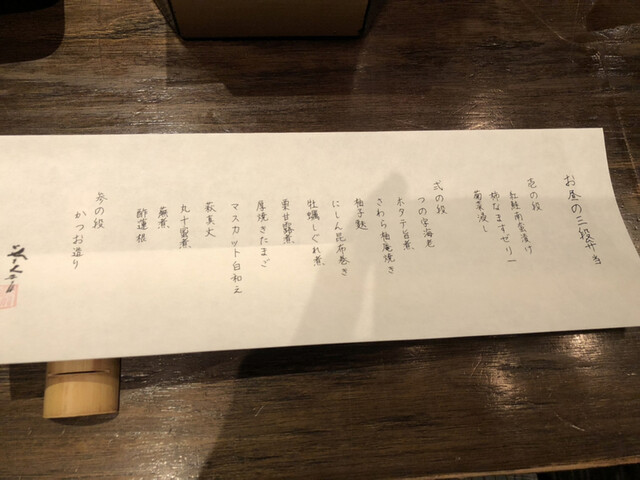 お昼の三段弁当
壱の段
紅鮭南蛮漬け
柿なますゼリー
菊菜浸し
弐の段
つの字海老
ホタテ旨煮
さわら柚庵焼き
柚子麩
にしん昆布巻き
牡蠣しぐれ煮
栗甘露煮
厚焼きたまご
マスカット白和え
萩真丈
丸十蜜煮
蕪煮
酢蓮根
参の段
かつお造り